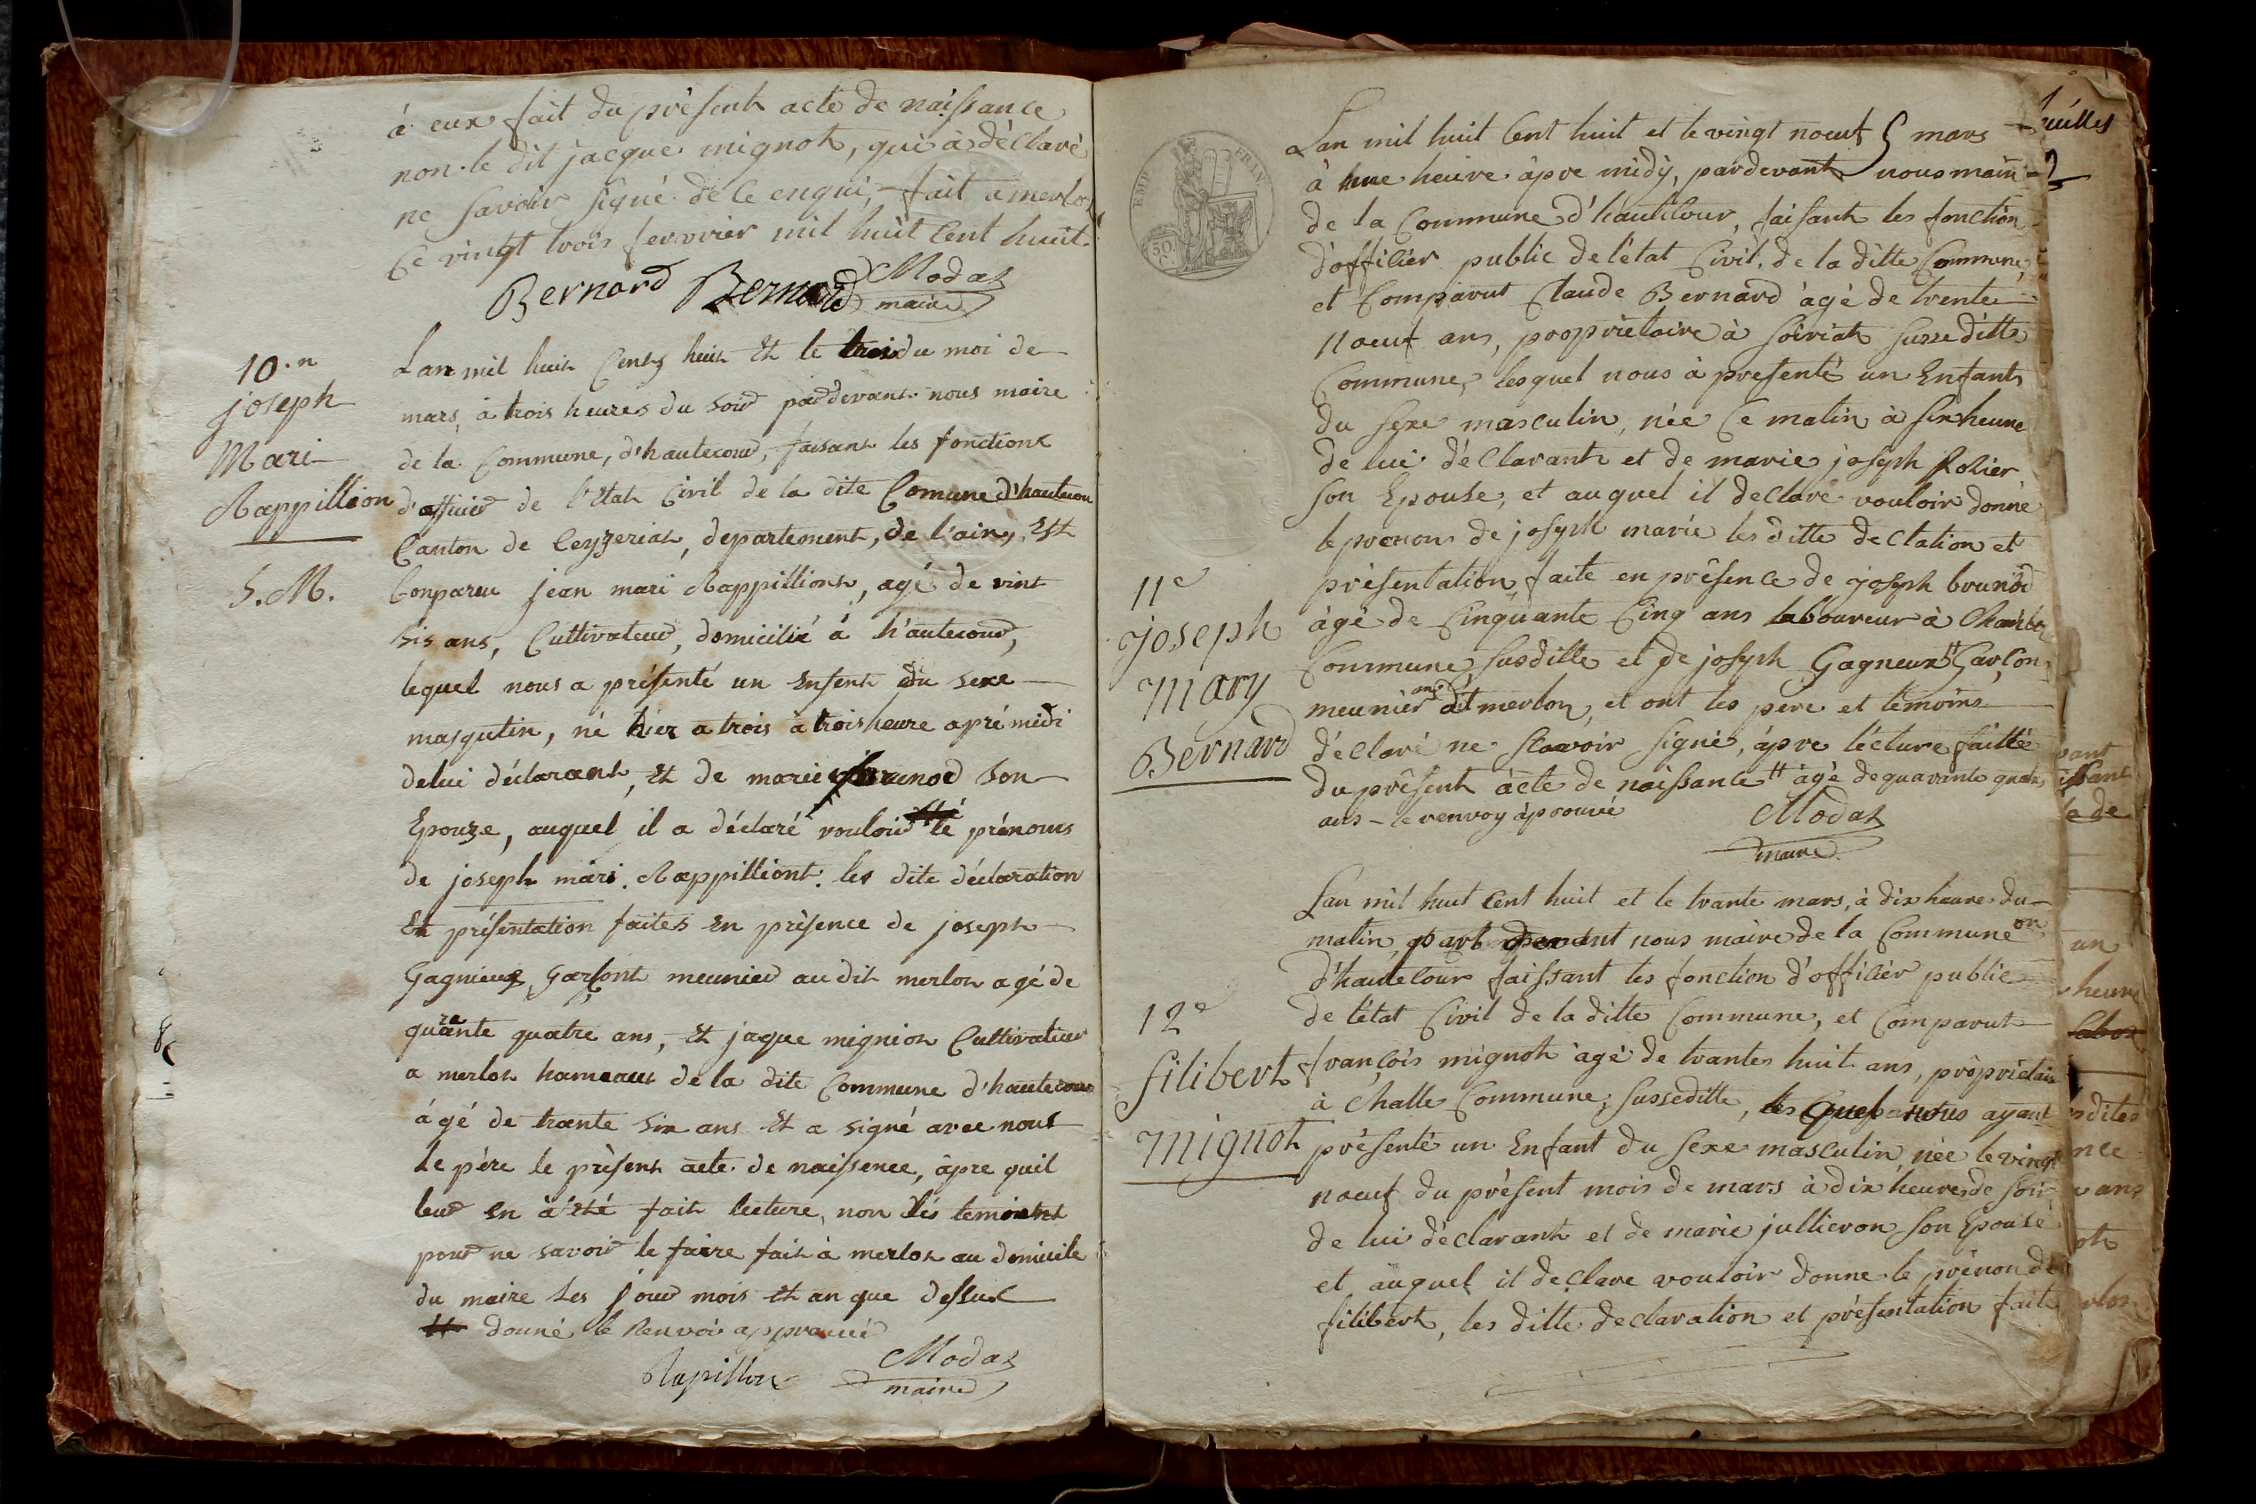 à eux fait du présent acte de naissance
non le dit jacque mignot, qui à déclaré
ne savoir signé de ce enqui, fait a merlot
Ce vingt trois fevvrier mil huit Cent huit.
Bernard Bernard Modas
maire
10.n
joseph
Mari
Rappillion
S.M.
Lan mil huit Cents huit Et le trois du moi de
mars, à trois heures du soir pardevant nous maire
de la Commune, d'hautecour, faisant les fonctions
d'officier de l'Etat Civil de la dite Comune d'hautecour
Canton de Ceyzeriat, departement, de l'ain, Est
Conparu jean mari Rappilliont, agé de vint
sis ans, Cultivateur, domicilié à h'autecour,
lequel nous a présenté un Enfent du sexe
masqulin, né hier a trois à trois heure apré midi
de lui déclarant, Et de marie brunod son
Epouze, auquel il a déclaré vouloir le prénoms
de joseph mari Rappilliont. les dite déclaration
Et présentation faites En présence de joseph
Gagnieux, Garsont meunier au dit merlot agé de
quarante quatre ans, Et jaque migniot Cultivatieur
a merlot hameaux de la dite Commune d'hautecour
ágé de trante six ans Et a signé avec nous
Le père le présent acte de naissence, âpre quil
leur en à été fait lecture, non lés temoints
pour ne savoir le faire fait à merlot au domicile
du maire Les jour mois Et an que dessus
donné le Renvoi approuvé
Rapillon Modas
maire
feuilles
Lan mil huit Cent huit et le vingt noeuf mars
à une heure âpre midÿ, pardevant nous maire
de la Commune d'hautecour, faisant les fonction
d'officier public de l'état Civil, de la ditte Commune,
et Comparut Claude Bernard àgé de trente
noeuf ans, propriètaire à soiriat susseditte
Commune, lesquel nous à presenté un Enfant
du sexe masculin, née Ce matin à six heure
de lui déclarant et de marie joseph Rolier
son Epouse, et auquel il declare vouloir donné
le prenom de joseph marie les ditte declation et
prèsentation faite en prêsence de joseph brunod
àgé de Cinquante Cinq ans laboureur à
Commune susditte et de joseph Gagneux tt Garçon
meunier à merlon, et ont les père et témoins
déclaré ne scavoir signé, âpre lécture faitte
du présent àcte de naissance tt àgé de quarante quatre
ans - le renvoy àprouvé
Modas
maire
11e
joseph
mary
Bernard
Lan mil huit Cent huit et le trante mars, à dix heures du
matin, par devant nous maire de la Commune
d'hautecour faissant les fonction d'officier public
de l'état Civil de la ditte Commune, et Comparut
françois mignot àgé de trantes huit ans, propriétaire
à Challe Commune, susseditte, les quel nous ayant
présenté un Enfant du sexe masculin née le vingt
noeuf du présent mois de mars à dix heures de soir
de lui déclarant et de marie jullieron son Epouse
et auquel il declare vouloir donne le prénon de
filibert, les ditte declaration et présentation faite
12e
filibert
mignot